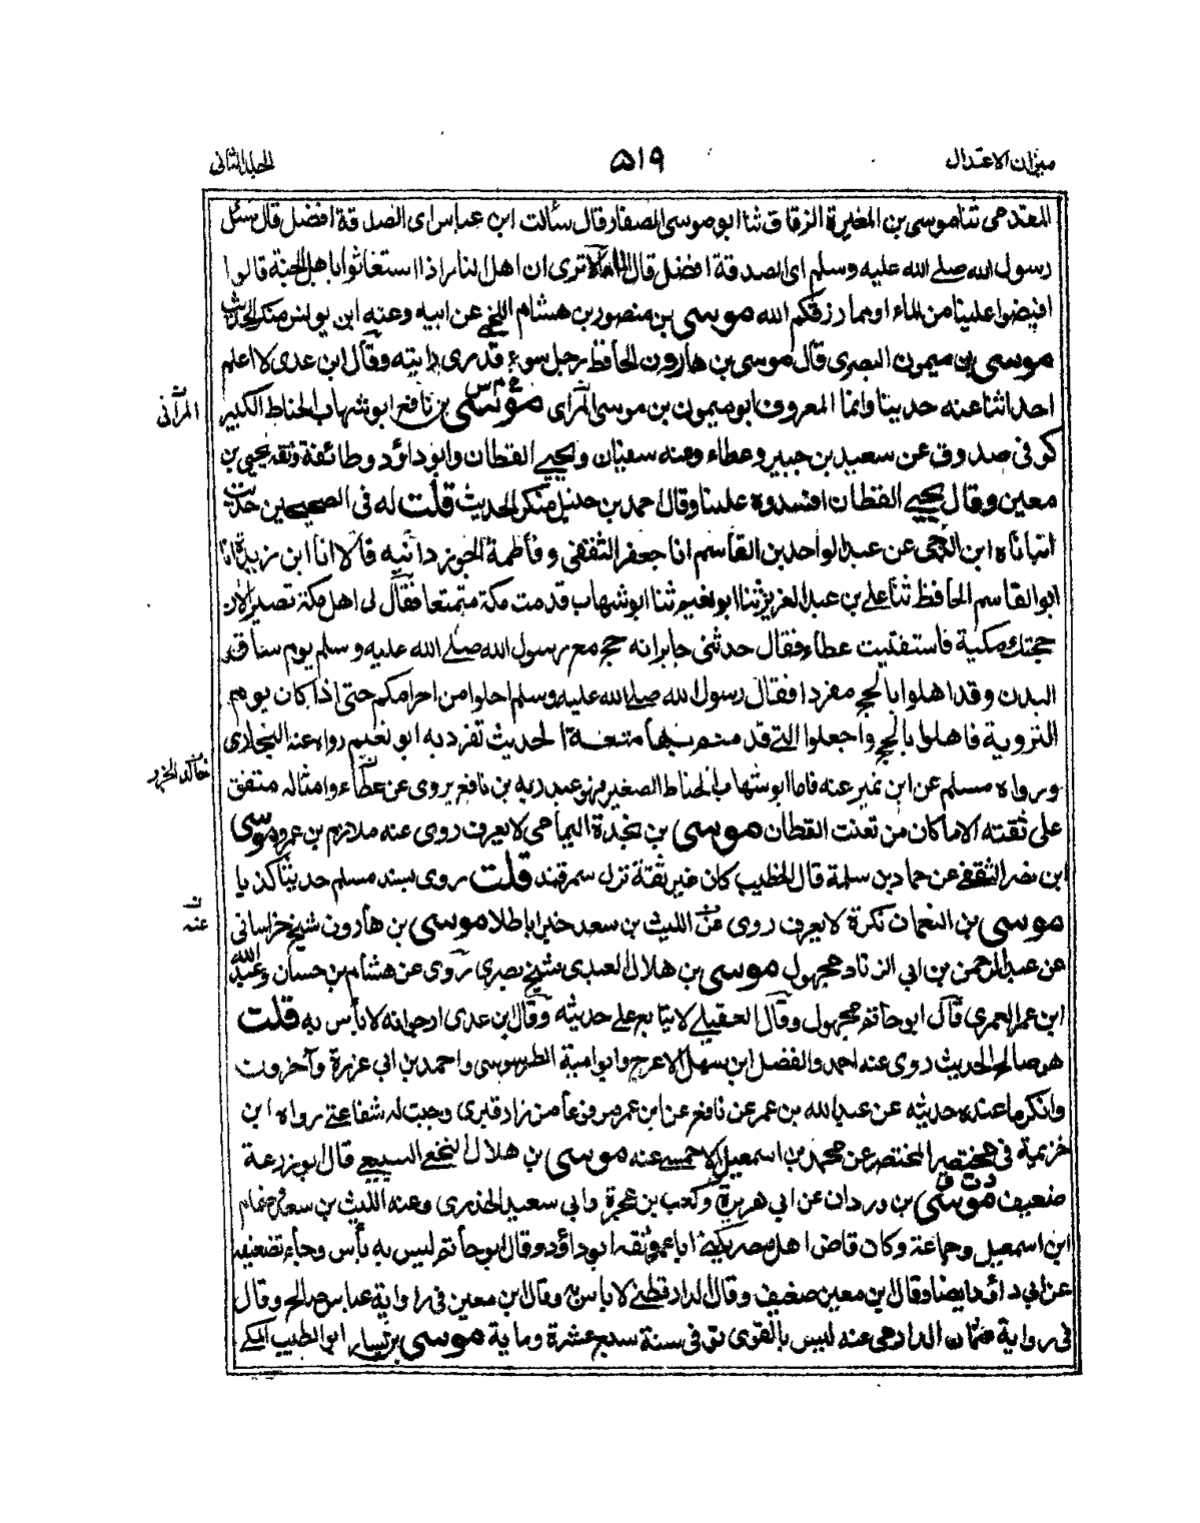 ميزان الاعتدال
۵۱۹
الجلد الثانى
المقدمى ثنا موسى بن المغيرة الزقاق ثنا ابو موسى الصفار قال سألت ابن عباس اى الصدقة افضل قال سئل
رسول الله صلے الله عليه وسلم اى الصدقة افضل قال الماء الا ترى ان اهل النار اذا استغاثوا باهل الجنة قالوا
افيضوا علينا من الماء او مما رزقكم الله موسى بن منصور بن هشام اللخمے عن ابيه وعنه ابن يونس منكر الحديث
موسى بن ميمون البصرى قال موسى بن هارون الحافظ رجل سوء قدرى رايته وقال ابن عدى لا اعلم
احدا ثنا عنه حديثا وانما المعروف ابو ميمون بن موسى المرأى موسى بن نافع ابو شهاب الحناط الكبير
كوفى صدوق عن سعيد بن جبير وعطاء وعنه سفيان ويحيے القطان وابو داؤد وطائفة وثقه يحيى بن
معين وقال يحيے القطان افسدوه علينا وقال احمد بن حنبل منكر الحديث قلت له فى الصحيحين حديث
انبأناه ابن الدرجى عن عبد الواحد بن القاسم انا جعفر الثقفى وفاطمة الجوزدانيه قالا انا ابن ريذة انا
ابو القاسم الحافظ ثنا على بن عبد العزيز ثنا ابو نعيم ثنا ابو شهاب قدمت مكة متمتعا فقال لى اهل مكة تصير الان
حجتك مكية فاستفتيت عطاء فقال حدثنى جابر انه حج مع رسول الله صلے الله عليه وسلم يوم ساق
البدن وقد اهلوا بالحج مفردا فقال رسول الله صلے الله عليه وسلم احلوا من احرامكم حتى اذا كان يوم
التروية فاهلوا بالحج واجعلوا التے قد متم بها متعة الحديث تفرد به ابو نعيم رواه عنه البخارى
ورواه مسلم عن ابن نمير عنه فاما ابو شهاب الحناط الصغير فهو عبد ربه بن نافع يروى عن عطاء وامثاله متفق
على ثقته الا ما كان من تعنت القطان موسى بن نجدة اليمامى لا يعرف روى عنه ملازم بن عمرو موسى
ابن نصر الثقفے عن حماد بن سلمة قال الخطيب كان غير ثقة نزل سمرقند قلت روى بسند مسلم حديثا كذبا
موسى بن النعمان نكرة لا يعرف روى عن الليث بن سعد خبرا باطلا موسى بن هارون شيخ خراسانى
عن عبد الرحمن بن ابى الزناد مجهول موسى بن هلال العبدى شيخ بصرى روى عن هشام بن حسان وعبد الله
ابن عمر العمرى قال ابو حاتم مجهول وقال العقيلے لا يتابع على حديثه وقال ابن عدى ارجو انه لا بأس به قلت
هو صالح الحديث روى عنه احمد والفضل ابن سهل الاعرج وابو امية الطرسوسى واحمد بن ابى غرزة وآخرون
وانكر ما عنده حديثه عن عبد الله بن عمر عن نافع عن ابن عمر مرفوعا من زار قبرى وجبت له شفاعتے رواه ابن
خزيمة فى مختصر المختصر عن محمد بن اسمعيل الاحمسے عنه موسى بن هلال النخعے السبيعے قال ابو زرعة
ضعيف موسى بن وردان عن ابى هريرة وكعب بن عجرة وابى سعيد الخدرى وعنه الليث بن سعد وضمام
ابن اسمعيل وجماعة وكان قاض اهل مصر يكنے ابا عمر وثقه ابو داؤد وقال ابو حاتم ليس به بأس وجاء تضعيفه
عن ابى داؤد ايضا وقال ابن معين ضعيف وقال الدارقطنے لا باس به وقال ابن معين فى رواية عباس صالح وقال
فى رواية عثمان الدارمى عنه ليس بالقوى توفى سنة سبع عشرة وماية موسى بن يسار ابو الطيب المكے
المرآئى
عنه